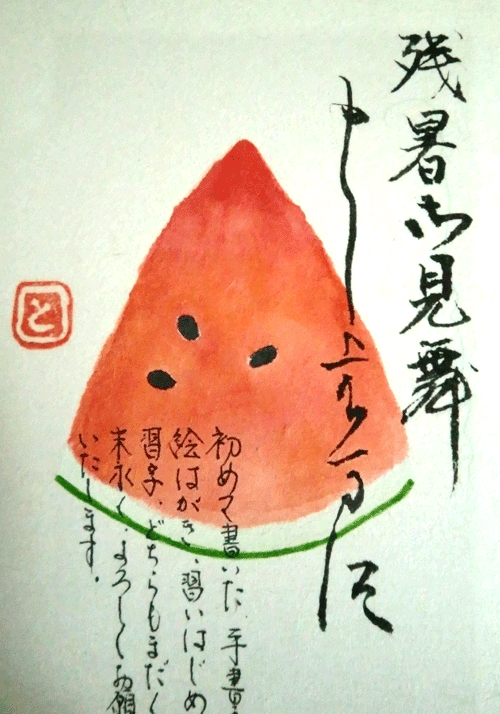 残暑お見舞
申し上げます
初めて書いた手書
絵はがき、習いはじめ
習字、どちらもまだ〱
末永くよろしくお願
いたします。
と